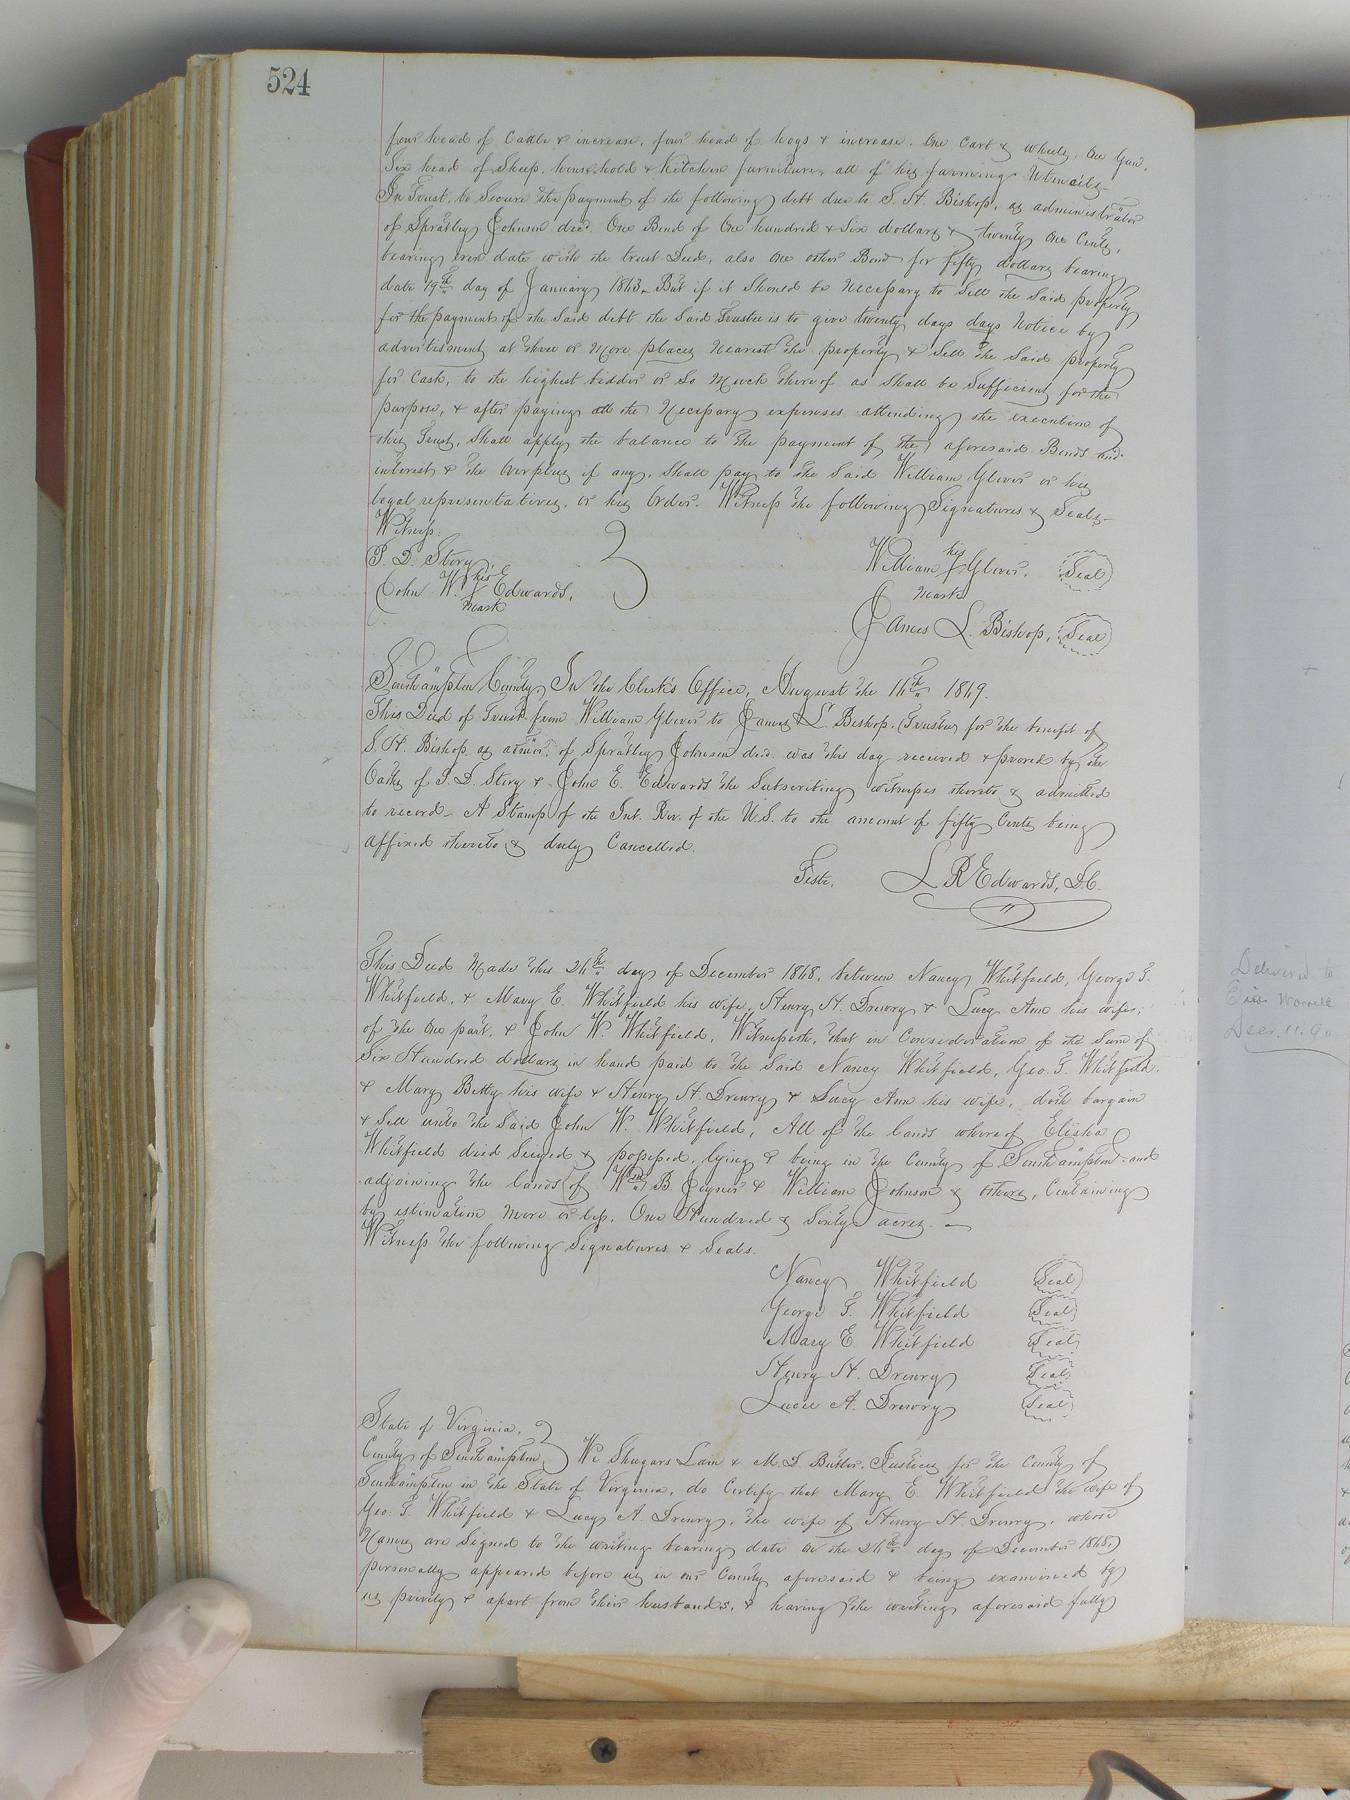 524
four head of Cattle & increase, four head of hogs & increase. One Cart & wheels, One Gun,
Six head of Sheep, household & Kitchen furniture, all of his farming Utencils—
In Trust, to Secure the payment of the following debt due to S. H. Bishop, as administrator
of Spratley Johnson decd. One Bond of One hundred & Six dollars & twenty One Cents,
bearing even date with the trust Deed, also One other Bond for fifty dollars bearing
date 19th day of January 1863. But if it Should be Necessary to Sell the Said property
for the payment of the Said debt the Said Trustee is to give twenty days days Notice by
advertisment at three or More places Nearest the property & Sell the Said property
for Cash, to the highest bidder or So Much thereof as Shall be Sufficient for the
purpose, & after paying all the Necessary expenses attending the execution of
this Trust, Shall apply the balance to the payment of the aforesaid Bonds and
interest & the Overplus if any, Shall pay to the Said William Glover or his
legal representatives, or his Order. Witness the following Signatures & Seals—
Witness:
P. D. Story
John W. his Edwards,
mark
William his Glover, Seal
mark
James L. Bishop, Seal
Southampton County, In the Clerk's Office, August the 16th 1869.
This Deed of Trust from William Glover to James L. Bishop, Trustee for the benefit of
S. H. Bishop as admor. of Spratley Johnson decd. was this day received & proved by the
Oaths of P. D. Story & John E. Edwards the Subscribing witnesses thereto & admitted
to record— A Stamp of the Int. Rev. of the U.S. to the amount of fifty Cents being
affixed thereto & duly Cancelled.
Teste, L R Edwards, D.C.
This Deed Made this 26th day of December 1868, between Nancy Whitfield, George T.
Whitfield, & Mary E. Whitfield his wife, Henry H. Drewry & Lucy Ann his wife,
of the One part, & John W. Whitfield, Witnesseth, that in Consideration of the Sum of
Six Hundred dollars in hand paid to the Said Nancy Whitfield, Geo. T. Whitfield,
& Mary Betty his wife & Henry H. Drewry & Lucy Ann his wife, doth bargain
& Sell unto the Said John W. Whitfield, All of the lands whereof Elisha
Whitfield died Seized & possessed, lying & being in the County of Southampton and
adjoining the lands of Wm B. Joyner & William Johnson & others, Containing
by estimation More or less, One Hundred & Sixty acres.—
Witness the following Signatures & Seals.
Nancy Whitfield Seal
George T. Whitfield Seal
Mary E Whitfield Seal
Henry H. Drewry Seal
Lucie A. Drewry Seal
State of Virginia,
County of Southampton, We Shugars Lain & M. D. Butler, Justices for the County of
Southampton in the State of Virginia, do Certify that Mary E. Whitfield the wife of
Geo. T. Whitfield & Lucy A. Drewry, the wife of Henry H. Drewry, whose
Names are Signed to the writing bearing date on the 26th day of December 1868,
personally appeared before us in our County aforesaid & being examined by
us privily & apart from their husbands, & having the writing aforesaid fully
Delivered to
Worrell
Decr. 11. 90